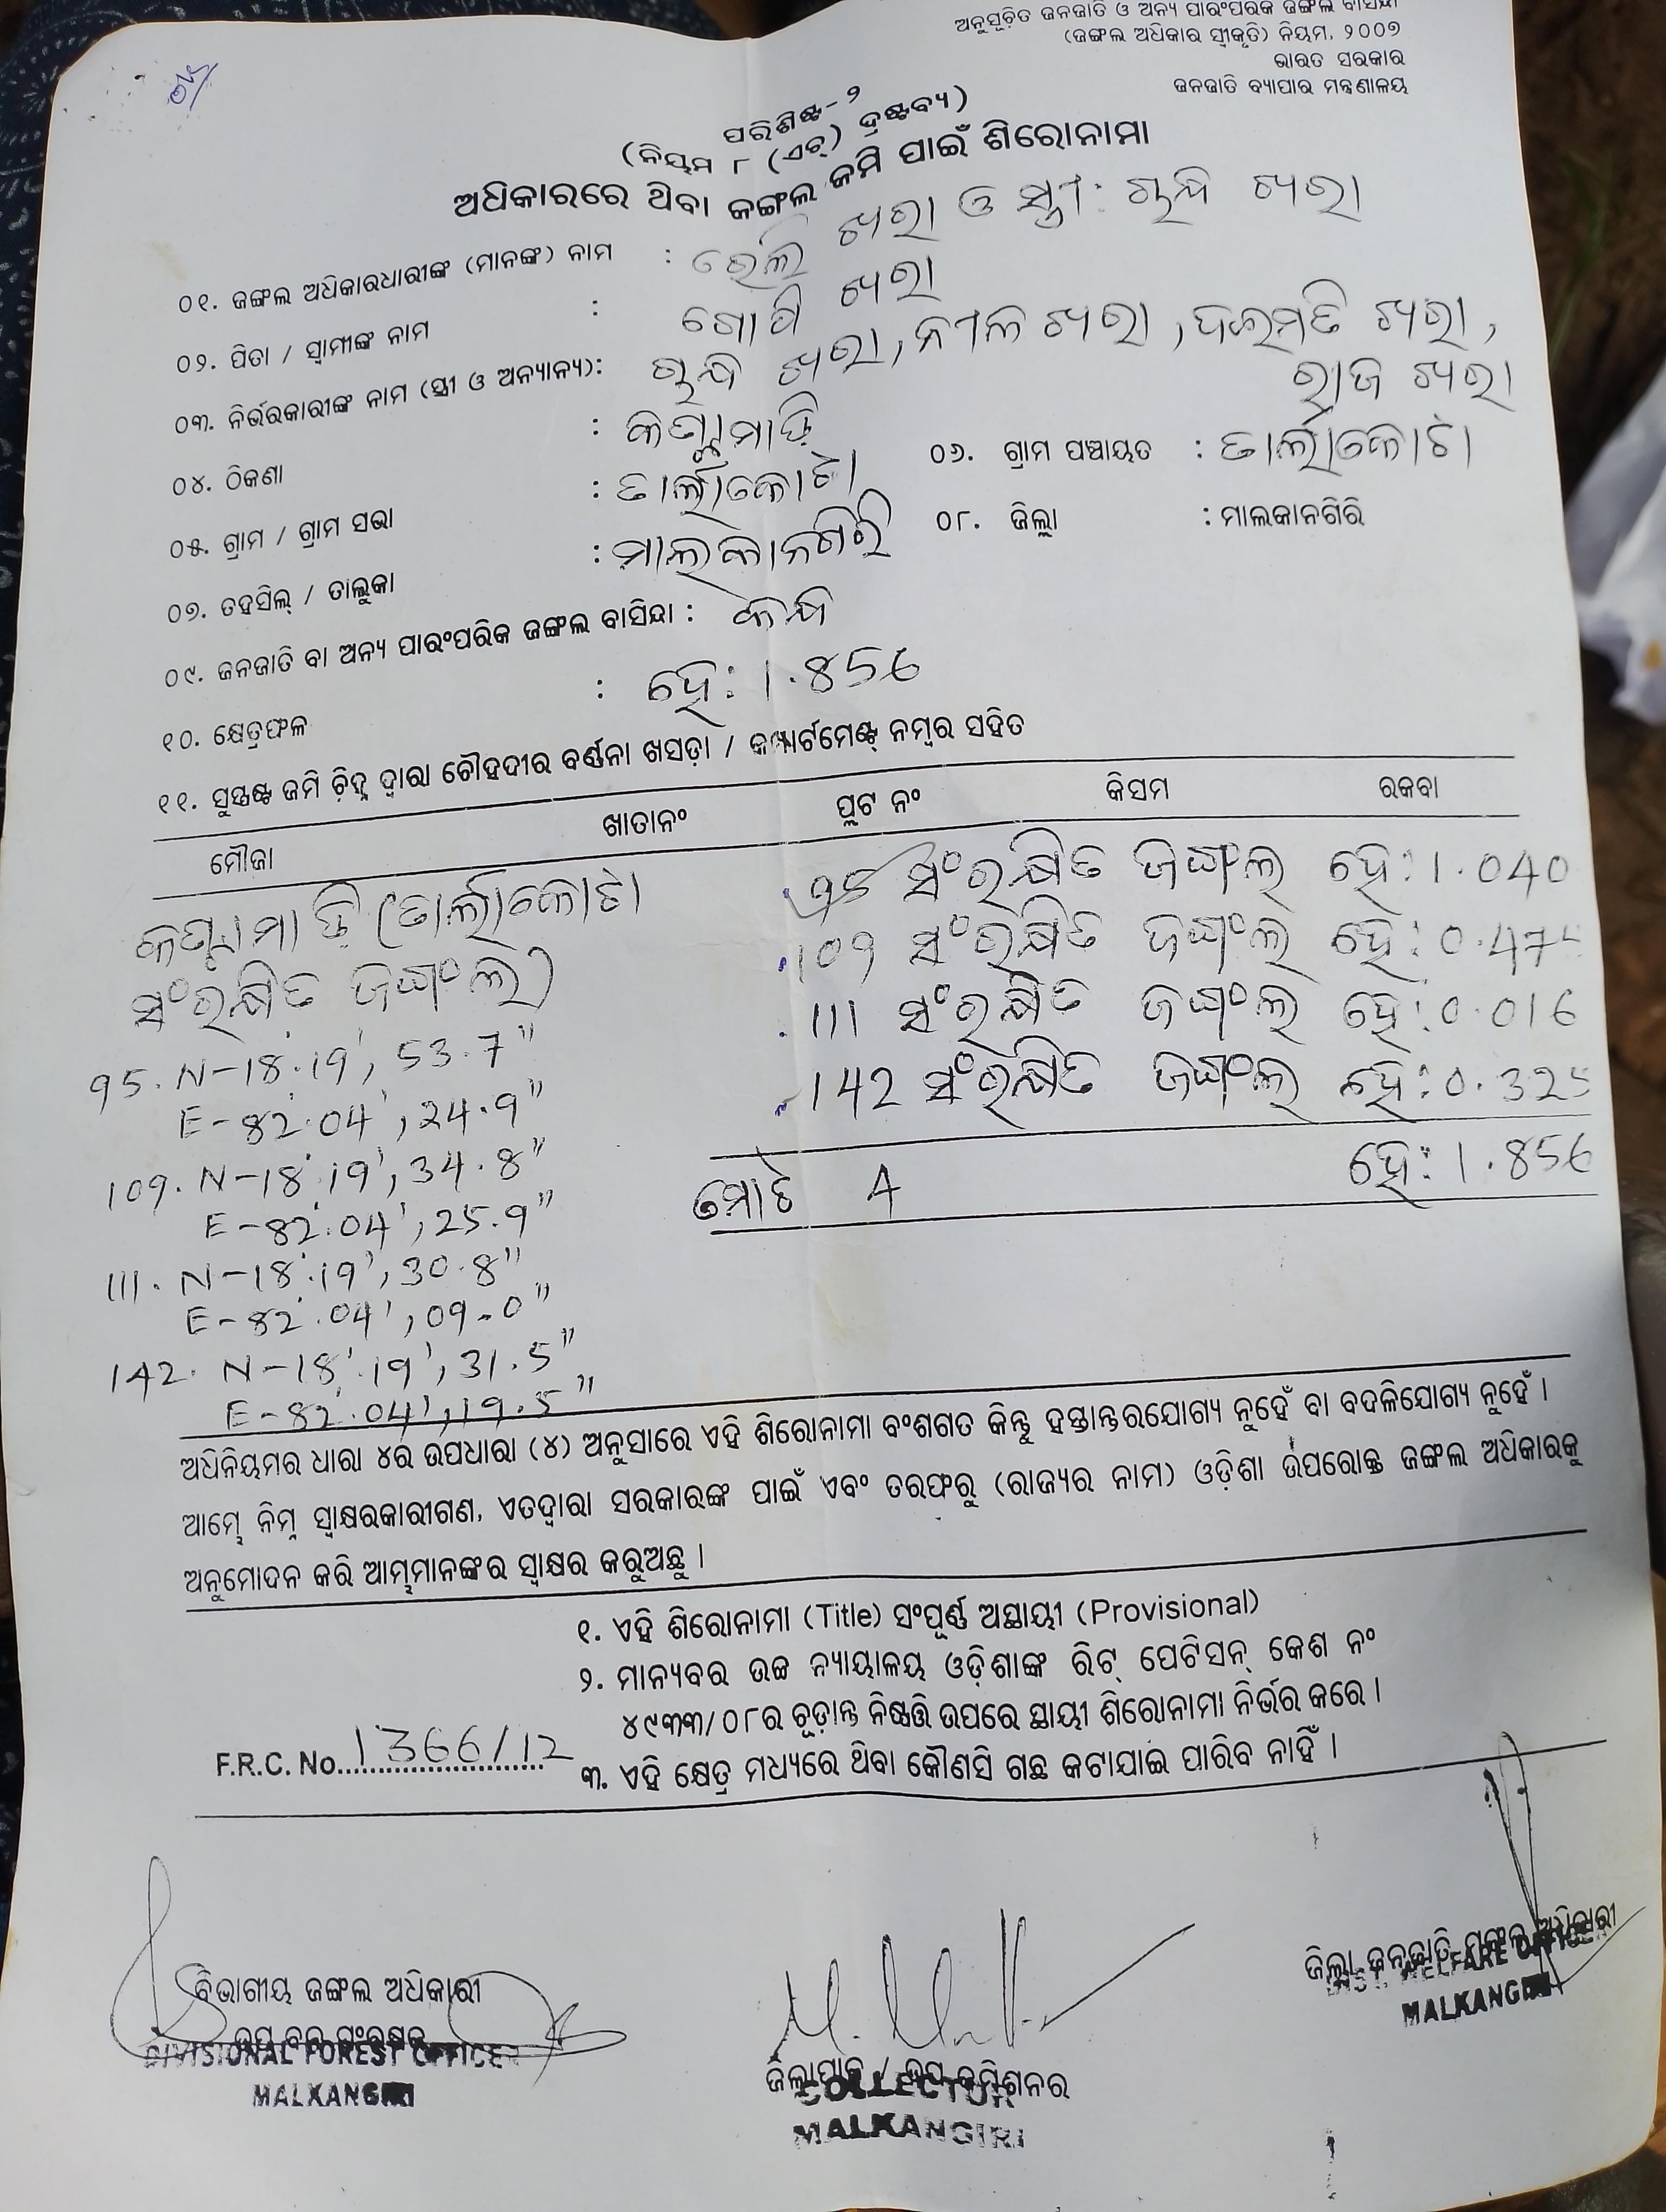 ଅନୁସୂଚିତ ଜନଜାତି ଓ ଅନ୍ୟ ପାରଂପରିକ ଜଙ୍ଗଲ ବାସିନ୍ଦା
(ଜଙ୍ଗଲ ଅଧିକାର ସ୍ୱୀକୃତି) ନିୟମ, ୨୦୦୭
ଭାରତ ସରକାର
ଜନଜାତି ବ୍ୟାପାର ମନ୍ତ୍ରଣାଳୟ
ପରିଶିଷ୍ଟ-୨
(ନିୟମ ୮ (ଏଚ୍) ଦ୍ରଷ୍ଟବ୍ୟ)
ଅଧିକାରରେ ଥିବା ଜଙ୍ଗଲ ଜମି ପାଇଁ ଶିରୋନାମା
୦୧. ଜଙ୍ଗଲ ଅଧିକାରଧାରୀଙ୍କ (ମାନଙ୍କ) ନାମ : ରେଲି ଖରା ଓ ସ୍ତ୍ରୀ: ଚାନ୍ଦି ଖରା
୦୨. ପିତା / ସ୍ୱାମୀଙ୍କ ନାମ : ଗୋପି ଖରା
୦୩. ନିର୍ଭରକାରୀଙ୍କ ନାମ (ସ୍ତ୍ରୀ ଓ ଅନ୍ୟାନ୍ୟ): ଚାନ୍ଦି ଖରା, ନୀଳ ଖରା, ଦଇମତି ଖରା,
ରାଜ ଖରା
୦୪. ଠିକଣା :
୦୫. ଗ୍ରାମ / ଗ୍ରାମ ସଭା : ତାର୍ଲାକୋଟା ୦୬. ଗ୍ରାମ ପଞ୍ଚାୟତ : ତାର୍ଲାକୋଟା
୦୭. ତହସିଲ୍ / ତାଲୁକା : ମାଲକାନଗିରି ୦୮. ଜିଲ୍ଲା : ମାଲକାନଗିରି
୦୯. ଜନଜାତି ବା ଅନ୍ୟ ପାରଂପରିକ ଜଙ୍ଗଲ ବାସିନ୍ଦା : କନ୍ଧ
୧୦. କ୍ଷେତ୍ରଫଳ : ହେ: 1.856
୧୧. ସୁସ୍ପଷ୍ଟ ଜମି ଚିହ୍ନ ଦ୍ୱାରା ଚୌହଦୀର ବର୍ଣ୍ଣନା ଖସଡ଼ା / କମ୍ପାର୍ଟମେଣ୍ଟ୍ ନମ୍ବର ସହିତ
ମୌଜା ଖାତାନଂ ପ୍ଲଟ ନଂ କିସମ ରକବା
(ତାର୍ଲାକୋଟା ସଂରକ୍ଷିତ ଜଙ୍ଗଲ)
95 ସଂରକ୍ଷିତ ଜଙ୍ଗଲ ହେ: 1.040
109 ସଂରକ୍ଷିତ ଜଙ୍ଗଲ ହେ: 0.475
111 ସଂରକ୍ଷିତ ଜଙ୍ଗଲ ହେ: 0.016
142 ସଂରକ୍ଷିତ ଜଙ୍ଗଲ ହେ: 0.325
ମୋଟ 4 ହେ: 1.856
95. N-18°.19', 53.7"
E-82°.04', 24.9"
109. N-18°.19', 34.8"
E-82°.04', 25.9"
111. N-18°.19', 30.8"
E-82°.04', 09.0"
142. N-18°.19', 31.5"
E-82°.04', 19.5"
ଅଧିନିୟମର ଧାରା ୪ର ଉପଧାରା (୪) ଅନୁସାରେ ଏହି ଶିରୋନାମା ବଂଶଗତ କିନ୍ତୁ ହସ୍ତାନ୍ତରଯୋଗ୍ୟ ନୁହେଁ ବା ବଦଳିଯୋଗ୍ୟ ନୁହେଁ ।
ଆମ୍ଭେ ନିମ୍ନ ସ୍ୱାକ୍ଷରକାରୀଗଣ, ଏତଦ୍ୱାରା ସରକାରଙ୍କ ପାଇଁ ଏବଂ ତରଫରୁ (ରାଜ୍ୟର ନାମ) ଓଡ଼ିଶା ଉପରୋକ୍ତ ଜଙ୍ଗଲ ଅଧିକାରକୁ
ଅନୁମୋଦନ କରି ଆମ୍ଭମାନଙ୍କର ସ୍ୱାକ୍ଷର କରୁଅଛୁ ।
୧. ଏହି ଶିରୋନାମା (Title) ସଂପୂର୍ଣ୍ଣ ଅସ୍ଥାୟୀ (Provisional)
୨. ମାନ୍ୟବର ଉଚ୍ଚ ନ୍ୟାୟାଳୟ ଓଡ଼ିଶାଙ୍କ ରିଟ୍ ପେଟିସନ୍ କେଶ ନଂ
୪୯୩୩/୦୮ର ଚୂଡ଼ାନ୍ତ ନିଷ୍ପତ୍ତି ଉପରେ ସ୍ଥାୟୀ ଶିରୋନାମା ନିର୍ଭର କରେ ।
F.R.C. No. 1366/12
୩. ଏହି କ୍ଷେତ୍ର ମଧ୍ୟରେ ଥିବା କୌଣସି ଗଛ କଟାଯାଇ ପାରିବ ନାହିଁ ।
ବିଭାଗୀୟ ଜଙ୍ଗଲ ଅଧିକାରୀ
ଉପ ବନ ସଂରକ୍ଷକ
DIVISIONAL FOREST OFFICER
MALKANGIRI
ଜିଲ୍ଲାପାଳ / ଉପ କମିଶନର
COLLECTOR
MALKANGIRI
ଜିଲ୍ଲା ଜନଜାତି ମଙ୍ଗଳ ଅଧିକାରୀ
DIST. WELFARE OFFICER
MALKANGIRI